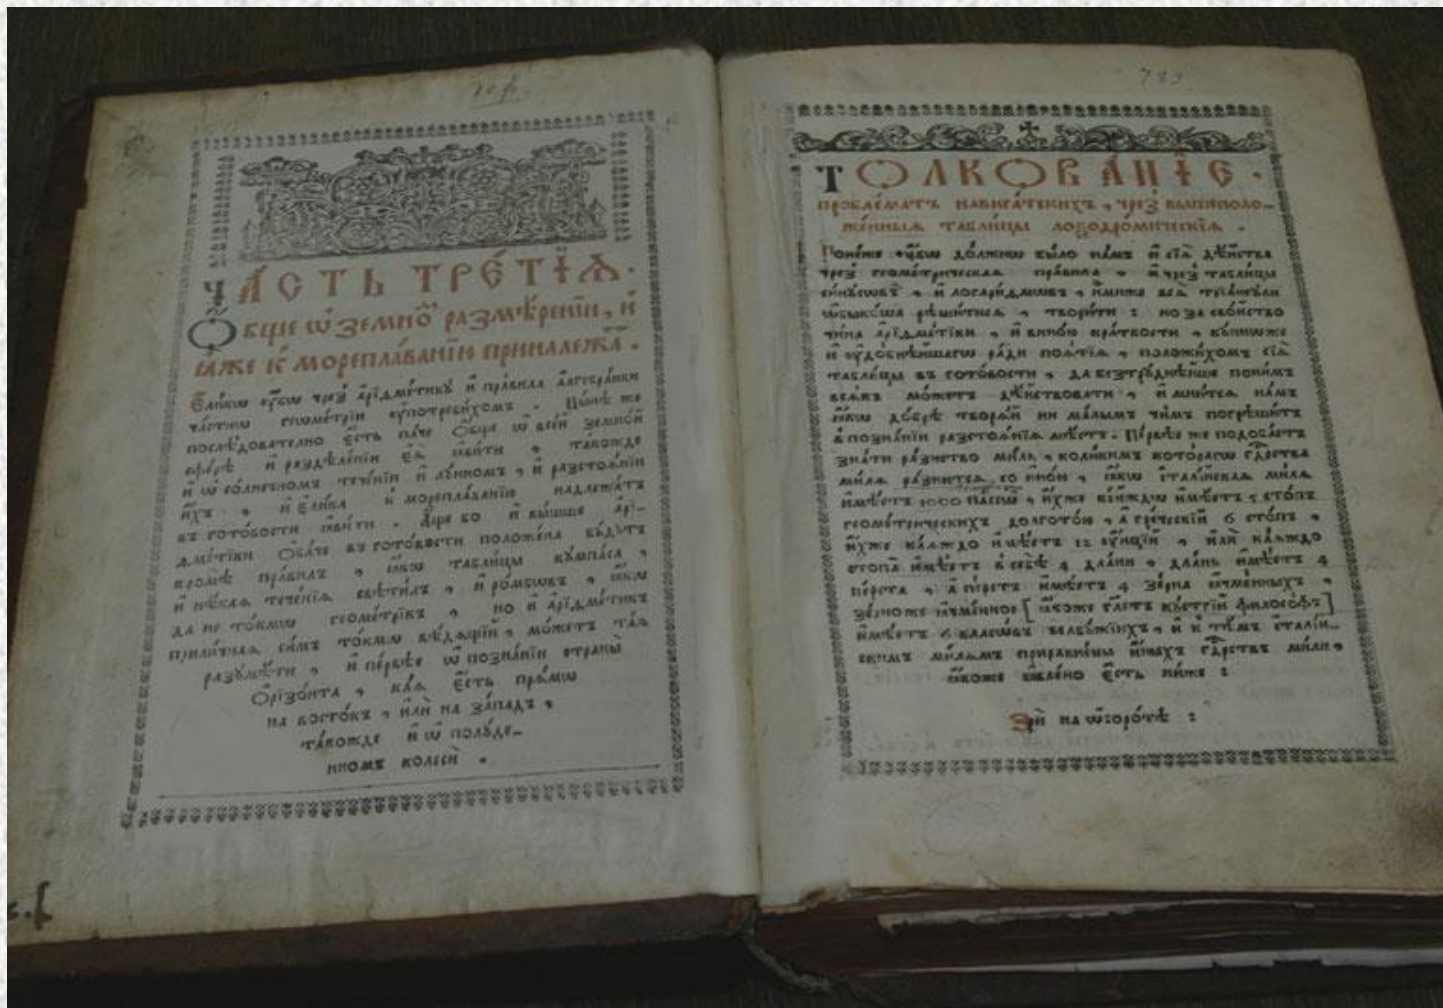 ЧА́СТЬ ТРЕ́ТІѦ.
Ѻбще ѡ҆ земно́ размѣ́реніи, и҆
ꙗ҆́же к̾ мореплаванїю приналежа́.
Е҆ли́кѡ ᲂу҆́бѡ чрез̾ а҆рїѳме́тїкꙋ и҆ пра́вила а҆лгебраики
ча́стїю геѡме́трїи ᲂу҆потреби́хомъ. Ны́нѣ же
послѣ́дователно є҆́сть па́че ѻ҆́бще ѡ҆ все́й земно́й
сфе́рѣ и҆ раздѣле́нїи є҆ѧ̀ ꙗ҆ви́ти, та́кожде
и҆ ѡ҆ со́лнечномъ тече́нїи и҆ лꙋ́нномъ, и҆ разстоѧ́нїи
и҆́хъ, и҆ є҆ли́ка к̾ мореплаванїю надлежа́тъ
въ гото́вости ꙗ҆ви́ти. А҆́ще бо и҆ вы́шше а҆рї-
ѳме́тїки ѻ҆ба́че въ гото́вости положе́на бꙋ́дꙋтъ
кромѣ̀ пра́вилъ, ꙗ҆́кѡ табли́цы кꙋмпа́са,
и҆ нѣ́каѧ тече́нїѧ свѣти́лъ, и҆ ро́мбѡвъ, ꙗ҆́кѡ
да не то́кмѡ геоме́трїкъ, но и҆ а҆рїѳме́тїкъ
прили́чнаѧ си́мъ то́кмѡ вѣ́дѧщїй, мо́жетъ та̑ѧ
разꙋмѣ́ти, и҆ пе́рвѣе ѡ҆ позна́нїи страны̀
ѻ҆рїзо́нта, ка́ѧ є҆́сть прѧ́мѡ
на восто́къ, и҆лѝ на за́падъ,
та́кожде и҆ ѡ҆ полꙋде-
нномъ колесѝ.
783
ТОЛКОВА́НЇЕ.
проблема́тъ навига́тскихъ, чрез̾ вышеполо-
же́нныѧ табли́цы лоѯодромическїѧ.
Поне́же ᲂу҆́бѡ до́лжно бы́ло на́мъ и҆ сїѧ̑ дѣ̑йства
чрез̾ геоме́трическаѧ пра́вила, и҆ чрез̾ табли́цы
сї́нꙋсѡвъ, и҆ логарі́ѳмѡвъ, и҆́миже всѧ̑ трїа́нгꙋли
ѡ҆бы́коша рѣши́тисѧ, твори́ти: но за сво́йство
чи́на а҆рїѳме́тїки, и҆ вѧ́щꙋю кра́ткости, кꙋ́пнѡже
и҆ ᲂу҆добнѣ́йшагѡ ра́ди поѧ́тїѧ, положи́хомъ сїѧ̑
табли́цы въ гото́вости, да безтрꙋ́днѣйше по ни́мъ
всѧ́къ мо́жетъ дѣ́йствовати, и҆ мни́тсѧ на́мъ
ꙗ҆́кѡ до́брѣ творѧ́й ни ма́лымъ чи́мъ погрѣши́тъ
в̾ позна́нїи разстоѧ́нїѧ мѣ́стъ. Пе́рвѣе же подоба́етъ
зна́ти ра́знство ми́ль, коли́кимъ которагѡ гдⷭ҇рства
ми́лѧ ра́знитсѧ со и҆но́ю, ꙗ҆́кѡ і҆талї́йскаѧ ми́лѧ
и҆мѣ́етъ 1000 пасѡвъ, и҆́хже кі́йждо и҆мѣ́етъ 5 сто́пъ
геоме́трическихъ долгото́ю, а҆ гре́ческїй 6 сто́пъ,
и҆́хже ка́ѧждо и҆мѣ́етъ 12 ᲂу҆́нцїй, и҆лѝ ка́ѧждо
стопа̀ и҆мѣ́етъ в̾ себѣ̀ 4 дла́ни, дла́нь и҆мѣ́етъ 4
пе́рста, а҆ пе́рстъ и҆мѣ́етъ 4 зе́рна ꙗ҆чме́нныхъ,
зе́рно же ꙗ҆чме́нное [ꙗ҆́коже гл҃етъ кꙋ́стїй філосо́фъ]
и҆мѣ́етъ 6 власѡ́въ велбꙋ́жїихъ, и҆ к̾ тѣ̑мъ і҆талї́й-
скимъ ми́лѧмъ приравне́ны и҆ны́хъ гдⷭ҇рствъ ми́ли,
ꙗ҆́коже ꙗ҆вле́но є҆́сть ни́же:
Зрѝ на ѡ҆боро́тѣ: